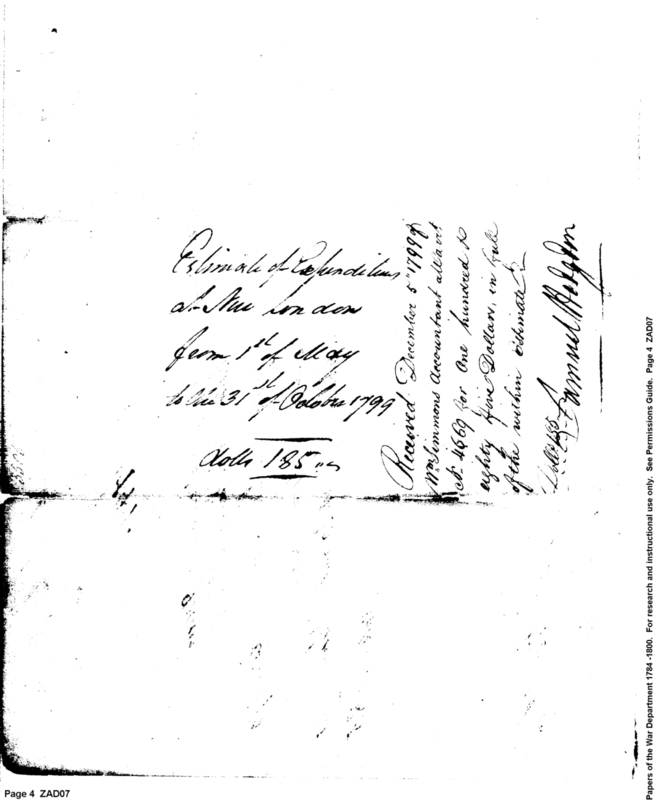 Estimate of Expenditures
at New London
from 1st of May
to the 31st of October 1799
dolls 185
Received December 5th 1799 of
Wm Simmons Accountant a Warrt
No 4669 for One hundred &
eighty five Dollars, in full
of the within estimate
Dolls 185
Samuel Hodgdon
Page 4 ZAD07
Papers of the War Department 1784 -1800. For research and instructional use only. See Permissions Guide. Page 4 ZAD07